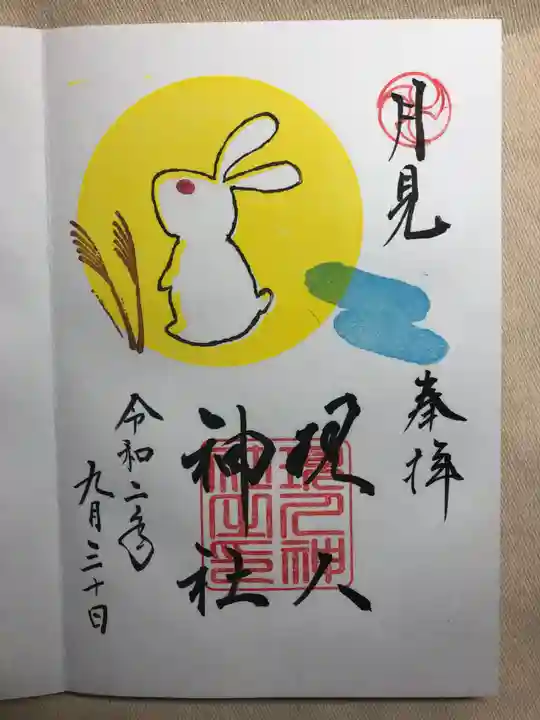 月見
奉拝
現人
神社
令和二年
九月三十日